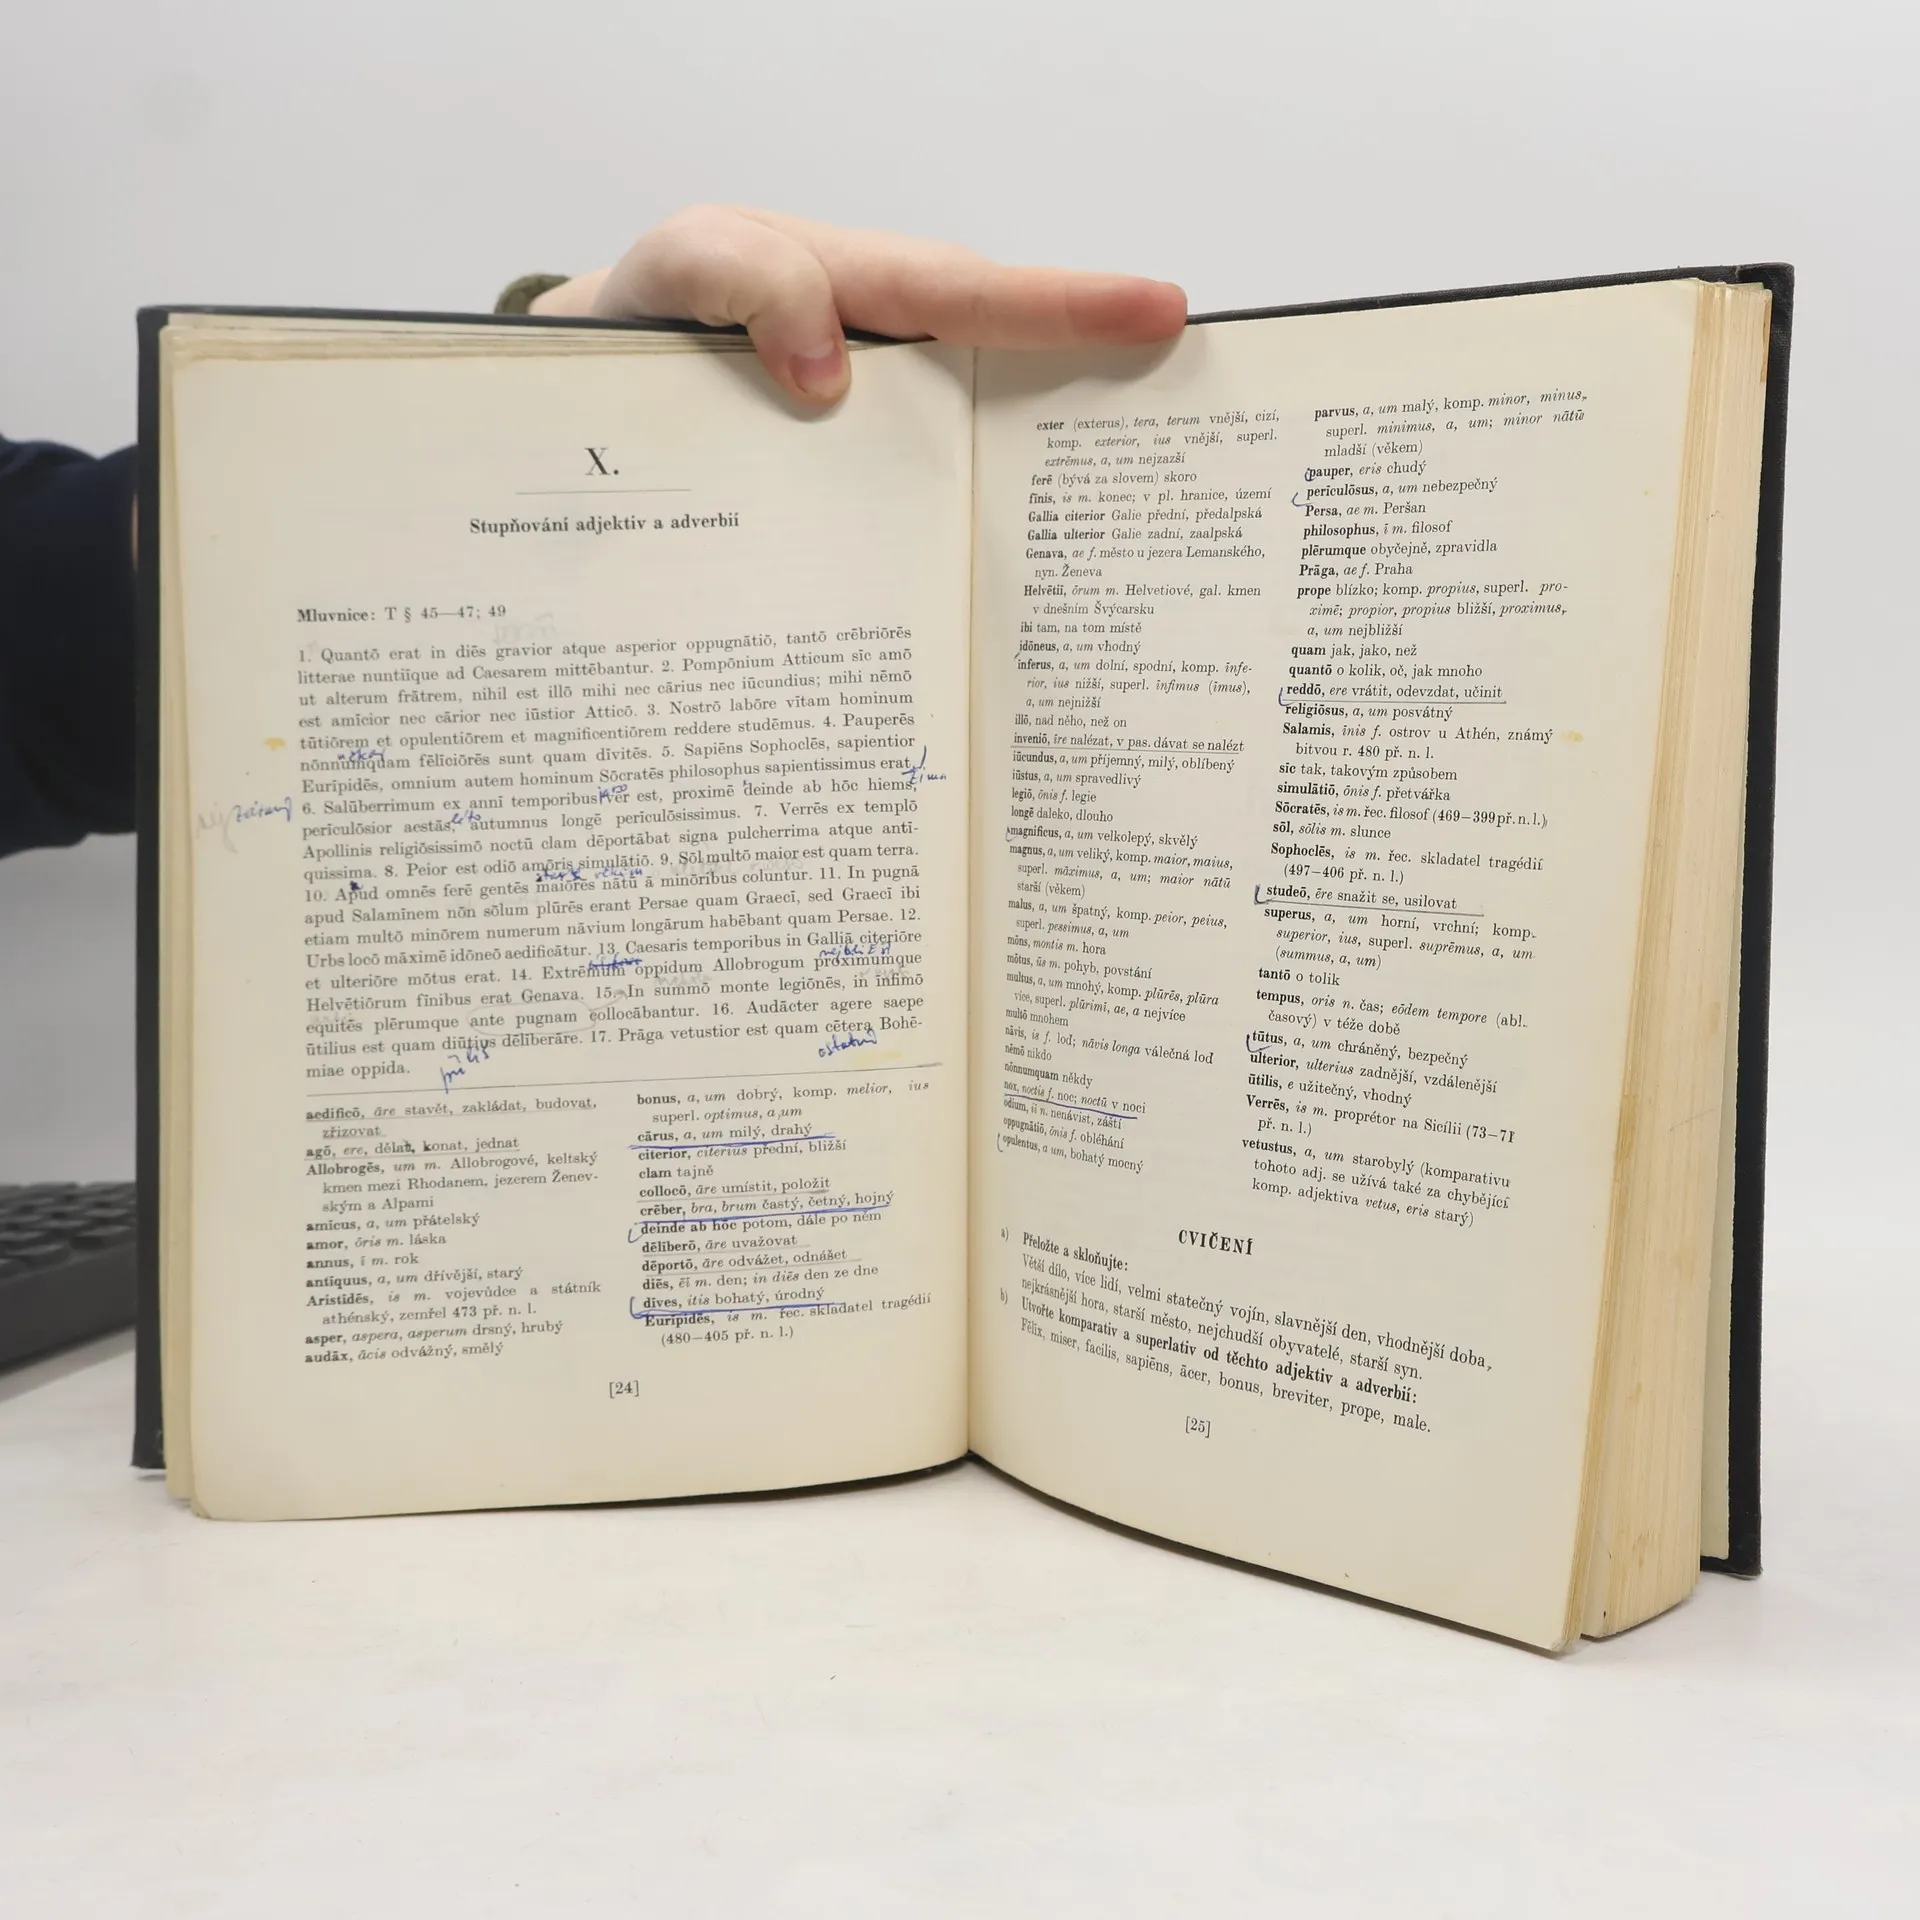 X.
Stupňování adjektiv a adverbií
Mluvnice: T § 45—47; 49
1. Quantō erat in diēs gravior atque asperior oppugnātiō, tantō crēbriōrēs
litterae nuntiīque ad Caesarem mittēbantur. 2. Pompōnium Atticum sīc amō
ut alterum frātrem, nihil est illō mihi nec cārius nec iūcundius; mihi nēmō
est amīcior nec cārior nec iūstior Atticō. 3. Nostrō labōre vītam hominum
tūtiōrem et opulentiōrem et magnificentiōrem reddere studēmus. 4. Pauperēs
nōnnumquam fēlīciōrēs sunt quam dīvitēs. 5. Sapiēns Sophoclēs, sapientior
Eurīpidēs, omnium autem hominum Sōcratēs philosophus sapientissimus erat.
zima
6. Salūberrimum ex annī temporibus vēr est, proximē deinde ab hōc hiems,
léto
perīculōsior aestās, autumnus longē perīculōsissimus. 7. Verrēs ex templō
Apollinis religiōsissimō noctū clam dēportābat signa pulcherrima atque antī-
quissima. 8. Peior est odiō amōris simulātiō. 9. Sōl multō maior est quam terra.
10. Apud omnēs ferē gentēs maiōrēs nātū ā minōribus coluntur. 11. In pugnā
apud Salamīnem nōn sōlum plūrēs erant Persae quam Graecī, sed Graecī ibi
etiam multō minōrem numerum nāvium longārum habēbant quam Persae. 12.
Urbs locō māximē idōneō aedificātur. 13. Caesaris temporibus in Galliā citeriōre
nejbližší
et ulteriōre mōtus erat. 14. Extrēmum oppidum Allobrogum proximumque
Helvētiōrum fīnibus erat Genava. 15. In summō monte legiōnēs, in īnfimō
equitēs plērumque ante pugnam collocābantur. 16. Audācter agere saepe
ūtilius est quam diūtius dēlīberāre. 17. Prāga vetustior est quam cētera Bohē-
příliš ostatní
miae oppida.
aedificō, āre stavět, zakládat, budovat,
zřizovat
agō, ere, dělat, konat, jednat
Allobrogēs, um m. Allobrogové, keltský
kmen mezi Rhodanem, jezerem Ženev-
ským a Alpami
amīcus, a, um přátelský
amor, ōris m. láska
annus, ī m. rok
antīquus, a, um dřívější, starý
Aristīdēs, is m. vojevůdce a státník
athénský, zemřel 473 př. n. l.
asper, aspera, asperum drsný, hrubý
audāx, ācis odvážný, smělý
bonus, a, um dobrý, komp. melior, ius
superl. optimus, a, um
cārus, a, um milý, drahý
citerior, citerius přední, bližší
clam tajně
collocō, āre umístit, položit
crēber, bra, brum častý, četný, hojný
deinde ab hōc potom, dále po něm
dēlīberō, āre uvažovat
dēportō, āre odvážet, odnášet
diēs, ēī m. den; in diēs den ze dne
dīves, itis bohatý, úrodný
Eurīpidēs, is m. řec. skladatel tragédií
(480—405 př. n. l.)
[24]
exter (exterus), tera, terum vnější, cizí,
komp. exterior, ius vnější, superl.
extrēmus, a, um nejzazší
ferē (bývá za slovem) skoro
fīnis, is m. konec; v pl. hranice, území
Gallia citerior Galie přední, předalpská
Gallia ulterior Galie zadní, zaalpská
Genava, ae f. město u jezera Lemanského,
nyn. Ženeva
Helvētiī, ōrum m. Helvetiové, gal. kmen
v dnešním Švýcarsku
ibi tam, na tom místě
idōneus, a, um vhodný
īnferus, a, um dolní, spodní, komp. īnfe-
rior, ius nižší, superl. īnfimus (īmus),
a, um nejnižší
illō, nad něho, než on
inveniō, īre nalézat, v pas. dávat se nalézt
iūcundus, a, um příjemný, milý, oblíbený
iūstus, a, um spravedlivý
legiō, ōnis f. legie
longē daleko, dlouho
magnificus, a, um velkolepý, skvělý
magnus, a, um veliký, komp. maior, maius,
superl. māximus, a, um; maior nātū
starší (věkem)
malus, a, um špatný, komp. peior, peius,
superl. pessimus, a, um
mōns, montis m. hora
mōtus, ūs m. pohyb, povstání
multus, a, um mnohý, komp. plūrēs, plūra
více, superl. plūrimī, ae, a nejvíce
multō mnohem
nāvis, is f. loď; nāvis longa válečná loď
nēmō nikdo
nōnnumquam někdy
nox, noctis f. noc; noctū v noci
odium, iī n. nenávist, záští
oppugnātiō, ōnis f. obléhání
opulentus, a, um, bohatý mocný
parvus, a, um malý, komp. minor, minus,
superl. minimus, a, um; minor nātū
mladší (věkem)
pauper, eris chudý
perīculōsus, a, um nebezpečný
Persa, ae m. Peršan
philosophus, ī m. filosof
plērumque obyčejně, zpravidla
Prāga, ae f. Praha
prope blízko; komp. propius, superl. pro-
ximē; propior, propius bližší, proximus,
a, um nejbližší
quam jak, jako, než
quantō o kolik, oč, jak mnoho
reddō, ere vrátit, odevzdat, učinit
religiōsus, a, um posvátný
Salamīs, īnis f. ostrov u Athén, známý
bitvou r. 480 př. n. l.
sīc tak, takovým způsobem
simulātiō, ōnis f. přetvářka
Sōcratēs, is m. řec. filosof (469—399 př. n. l.)
sōl, sōlis m. slunce
Sophoclēs, is m. řec. skladatel tragédií
(497—406 př. n. l.)
studeō, ēre snažit se, usilovat
superus, a, um horní, vrchní; komp.
superior, ius, superl. suprēmus, a, um
(summus, a, um)
tantō o tolik
tempus, oris n. čas; eōdem tempore (abl.
časový) v téže době
tūtus, a, um chráněný, bezpečný
ulterior, ulterius zadnější, vzdálenější
ūtilis, e užitečný, vhodný
Verrēs, is m. proprétor na Sicílii (73—71
př. n. l.)
vetustus, a, um starobylý (komparativu
tohoto adj. se užívá také za chybějící
komp. adjektiva vetus, eris starý)
CVIČENÍ
a) Přeložte a skloňujte:
Větší dílo, více lidí, velmi statečný vojín, slavnější den, vhodnější doba,
nejkrásnější hora, starší město, nejchudší obyvatelé, starší syn.
b) Utvořte komparativ a superlativ od těchto adjektiv a adverbií:
Fēlīx, miser, facilis, sapiēns, ācer, bonus, breviter, prope, male.
[25]